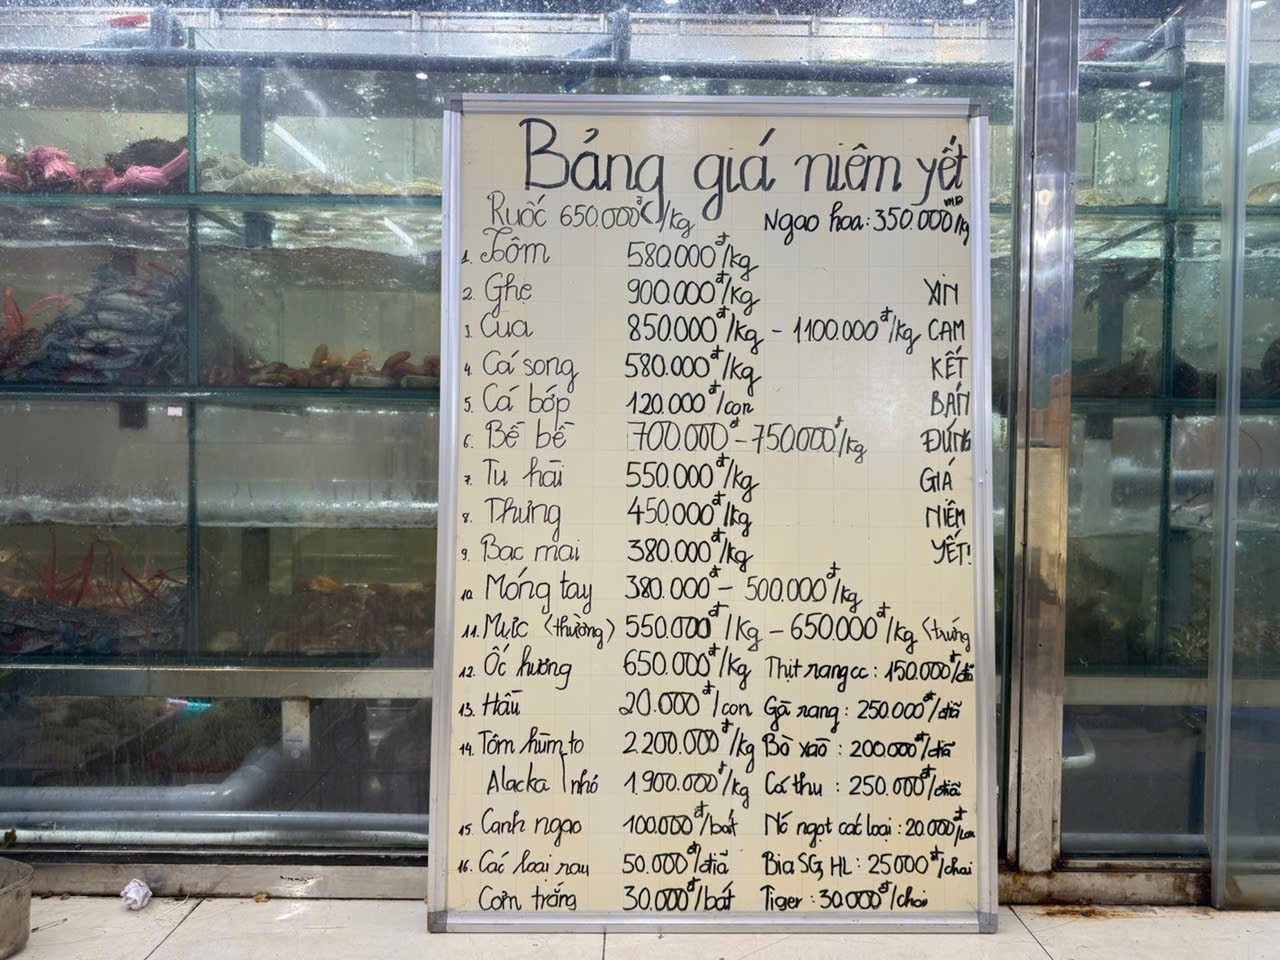 Bảng giá niêm yết
Ruốc 650.000đ/kg Ngao hoa: 350.000/kg
1. Tôm 580.000đ/kg
2. Ghẹ 900.000đ/kg XIN
3. Cua 850.000đ/kg - 1100.000đ/kg CAM
4. Cá song 580.000đ/kg KẾT
5. Cá bóp 120.000đ/con BÁN
6. Bề bề 700.000đ - 750.000đ/kg ĐÚNG
7. Tu hài 550.000đ/kg GIÁ
8. Thưng 450.000đ/kg NIÊM
9. Bạc mai 380.000đ/kg YẾT!
10. Móng tay 380.000đ - 500.000đ/kg
11. Mực (thường) 550.000đ/kg - 650.000đ/kg (trứng
12. Ốc hương 650.000đ/kg Thịt rang cc: 150.000đ/đĩa
13. Hàu 20.000đ/con Gà rang: 250.000đ/đĩa
14. Tôm hùm to 2.200.000đ/kg Bò xào: 200.000đ/đĩa
Alacka nhỏ 1.900.000đ/kg Cá thu: 250.000đ/đĩa
15. Canh ngao 100.000đ/bát Nc ngọt các loại: 20.000đ/lon
16. Các loại rau 50.000đ/đĩa Bia SG, HL: 25000đ/chai
Cơm trắng 30.000đ/bát Tiger: 30.000đ/chai